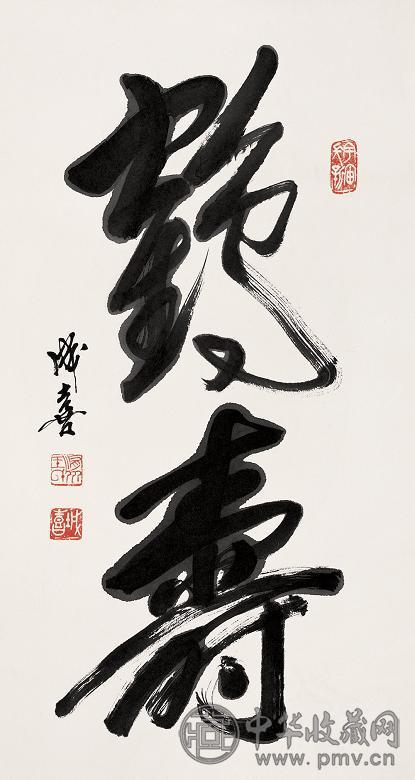 鹤寿
成喜
中华收藏网
www.pmv.cn